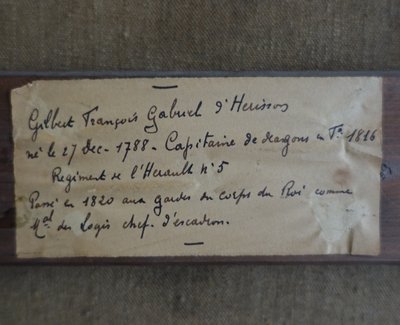 Gilbert François Gabriel d'Herisson
né le 27 Dec. 1788 - Capitaine de dragons en 1816
Regiment de l'Herault N° 5
Passé en 1820 aux gardes du corps du Roi comme
Mal des Logis chef. d'escadron.